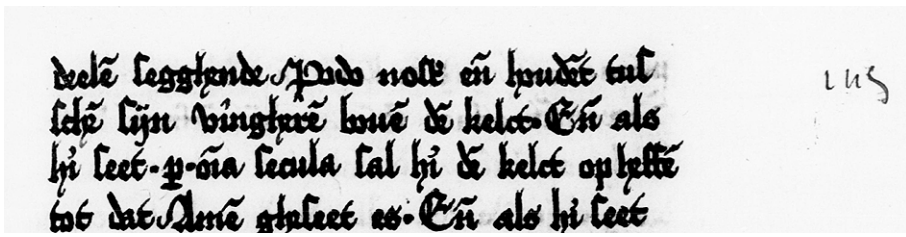 deelē segghende Pado nosť eñ houdēt tus
schē sijn vingherē bouē dē kelct. Eñ als
hi seet .p. oīa secula sal hi dē kelct op heffē
tot dat Amē gheseet es. Eñ als hi seet